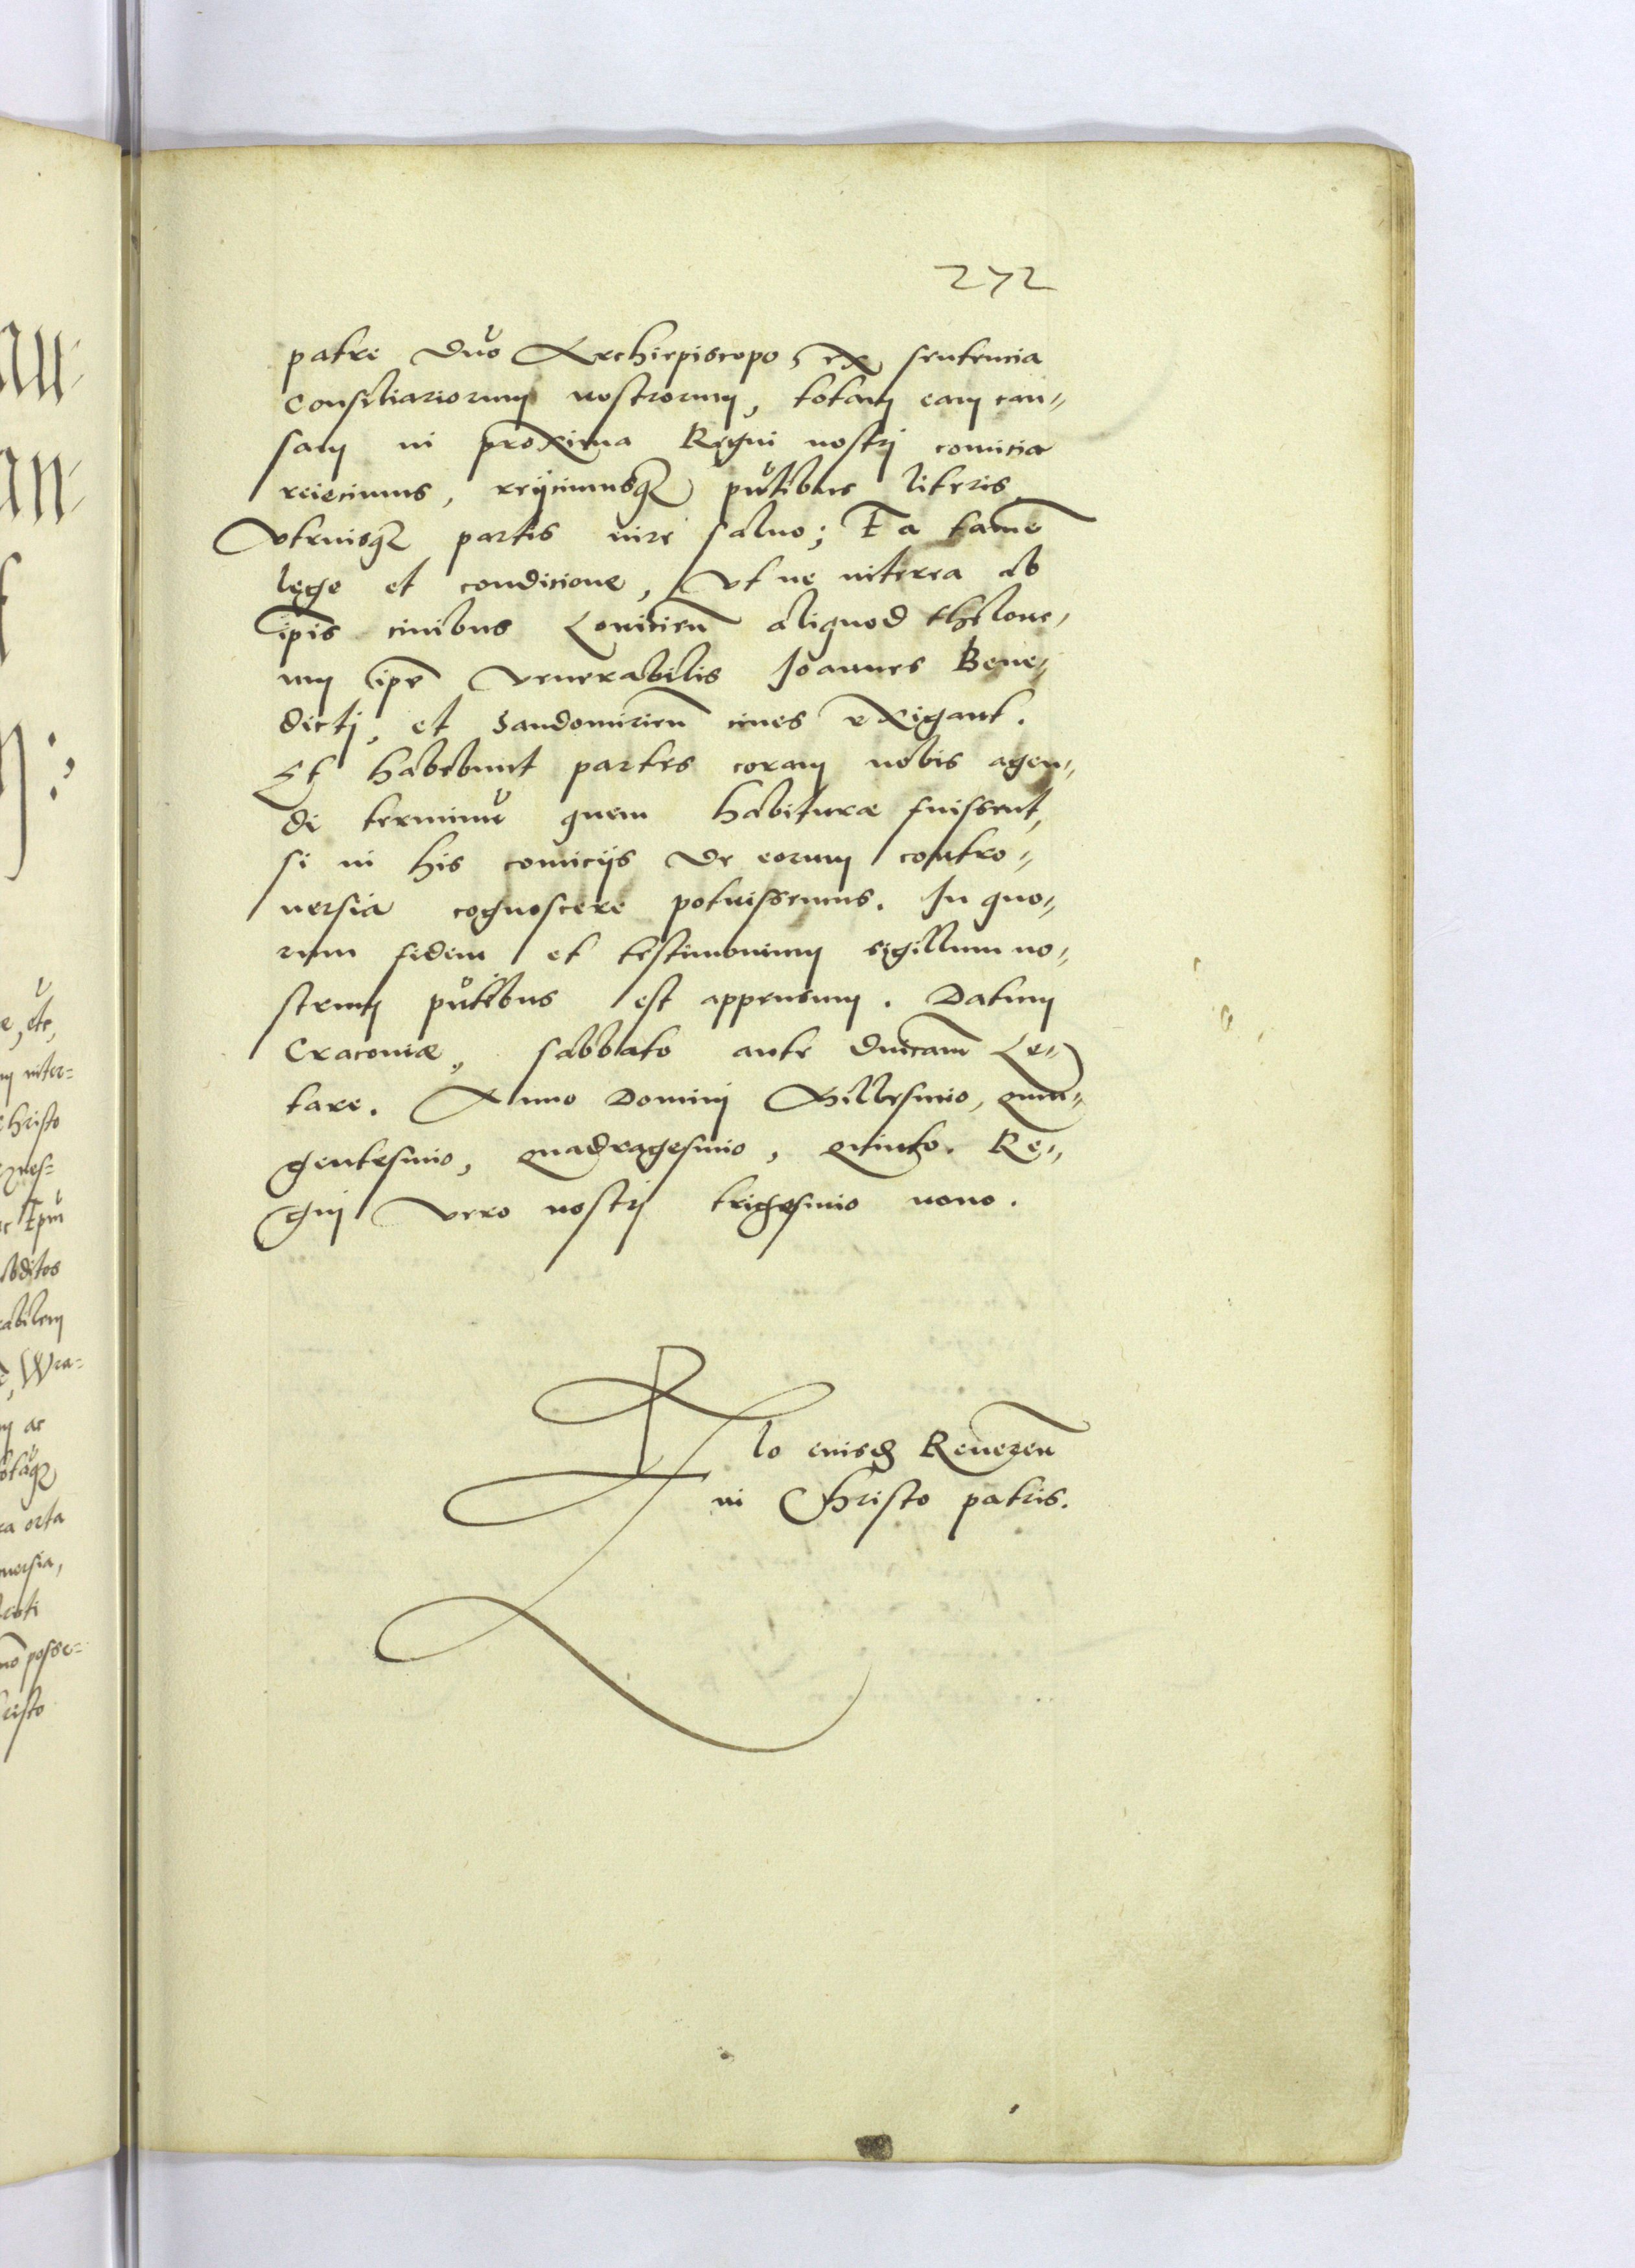 272
patre Dno Archiepiscopo, ex sentencia
Consiliariorum nostrorum, totam eam cau-
sam in proxima Regni nostrj comicia
reiecimus, reijcimusq3 pñtibus literis
Vtriusq3 partis iure saluo; Ea tamē
lege et condicione, Vt ne interea ab
ipis ciuibus Louicieñ aliquod thelone-
um ipe Venerabilis Joannes Bene-
dictj, et Sandomirieñ ciues exigant.
Et habebunt partes coram nobis agen-
di terminū quem habituræ fuissent,
si in his comicijs de eorum contro-
uersia cognoscere potuissemus. In quo-
rum fidem et testimonium sigillum no-
strum pñtibus est appensum. Datum
Cracouiæ, sabbato ante Dnicam Le-
tare. Anno Dominj Millesimo, quin-
gentesimo, quadragesimo, quinto. Re-
gnj vero nostrj trigesimo nono.
lo eiusd Reueren
in Christo patris.
e, etc,
m inter=
Christo
ques=
c Epm
bditos
rabilem
, Wra=
m ac
totāq3
ra orta
uersia,
no posse=
risto